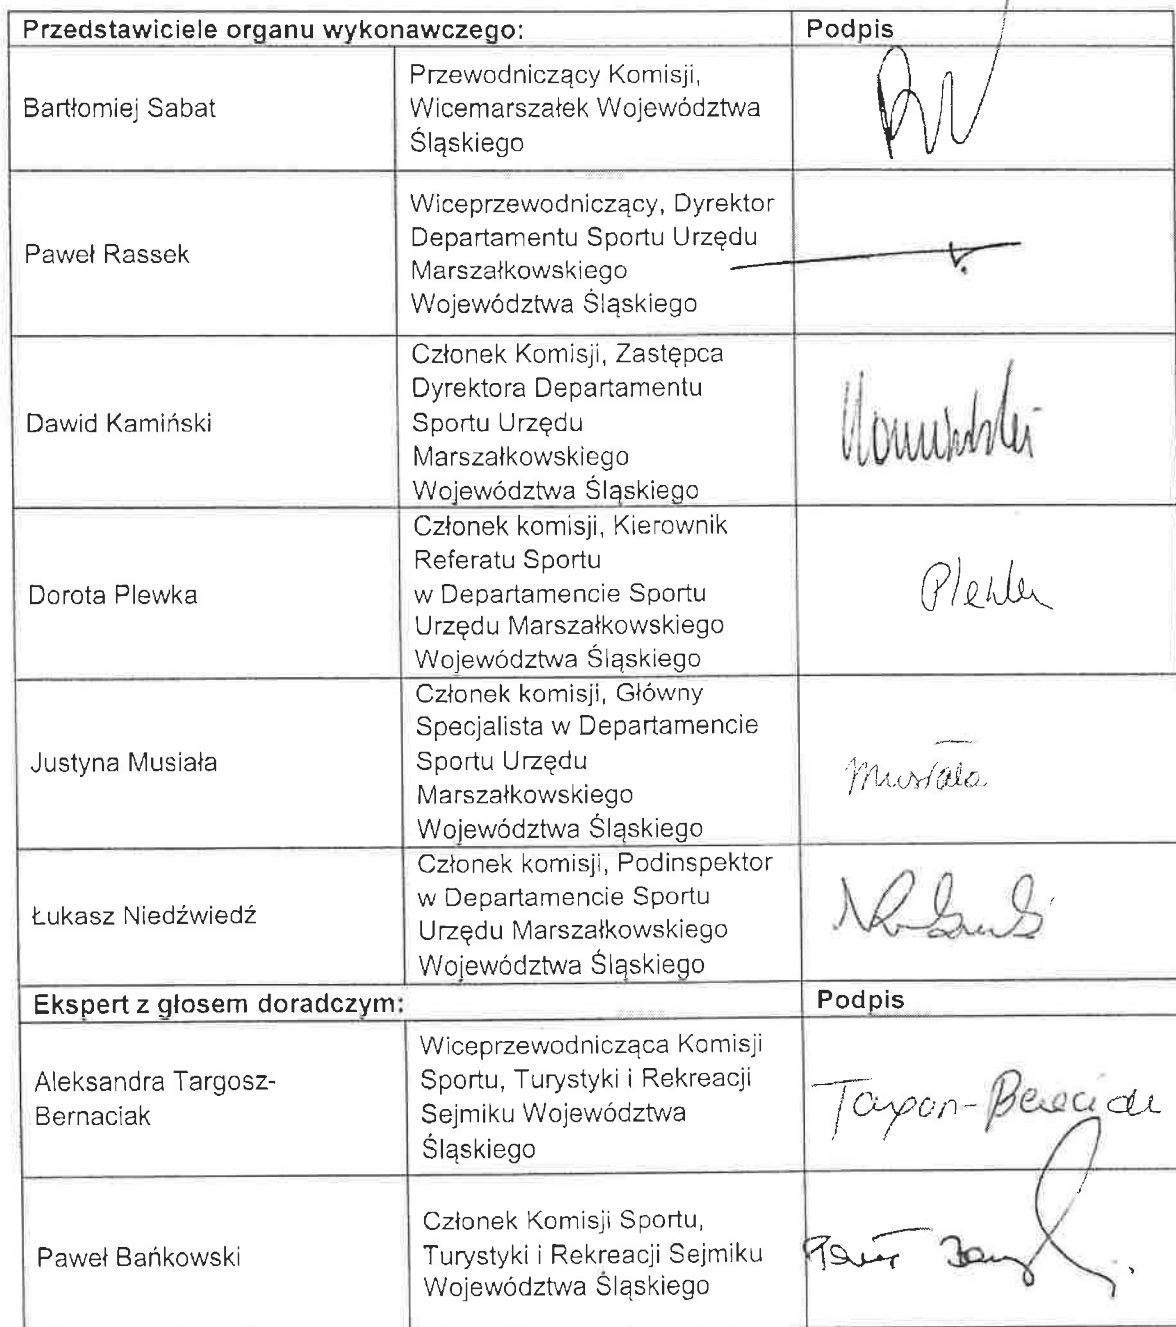 Przedstawiciele organu wykonawczego: Podpis
Bartłomiej Sabat
Przewodniczący Komisji,
Wicemarszałek Województwa
Śląskiego
Paweł Rassek
Wiceprzewodniczący, Dyrektor
Departamentu Sportu Urzędu
Marszałkowskiego
Województwa Śląskiego
Dawid Kamiński
Członek Komisji, Zastępca
Dyrektora Departamentu
Sportu Urzędu
Marszałkowskiego
Województwa Śląskiego
Dorota Plewka
Członek komisji, Kierownik
Referatu Sportu
w Departamencie Sportu
Urzędu Marszałkowskiego
Województwa Śląskiego
Justyna Musiała
Członek komisji, Główny
Specjalista w Departamencie
Sportu Urzędu
Marszałkowskiego
Województwa Śląskiego
Musiała
Łukasz Niedźwiedź
Członek komisji, Podinspektor
w Departamencie Sportu
Urzędu Marszałkowskiego
Województwa Śląskiego
Ekspert z głosem doradczym: Podpis
Aleksandra Targosz-
Bernaciak
Wiceprzewodnicząca Komisji
Sportu, Turystyki i Rekreacji
Sejmiku Województwa
Śląskiego
Paweł Bańkowski
Członek Komisji Sportu,
Turystyki i Rekreacji Sejmiku
Województwa Śląskiego